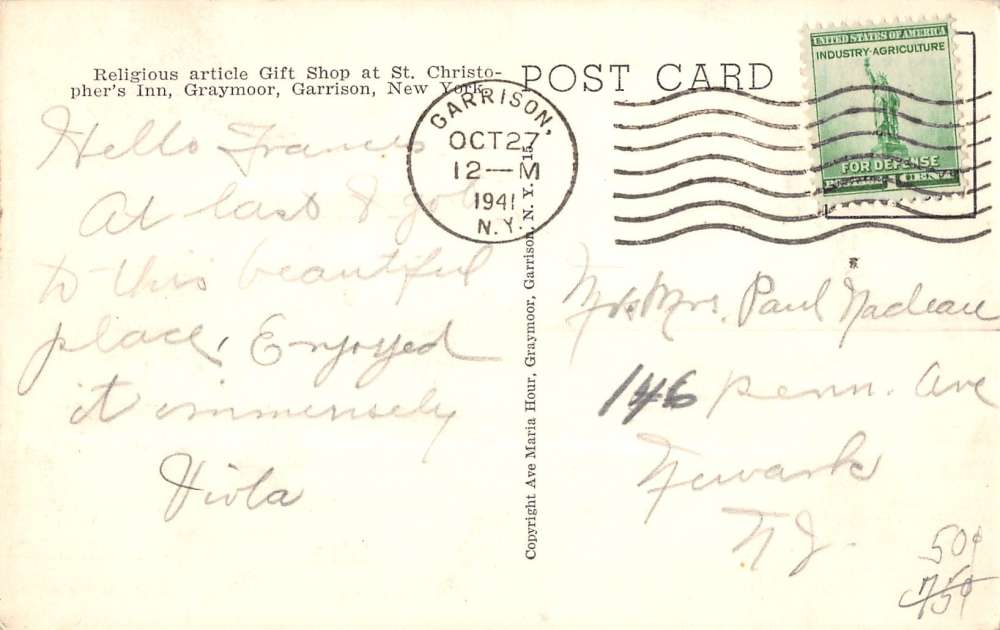 Religious article Gift Shop at St. Christo-
pher's Inn, Graymoor, Garrison, New York.
POST CARD
UNITED STATES OF AMERICA
INDUSTRY·AGRICULTURE
FOR DEFENSE
GARRISON,
OCT 27
12—M
1941
N.Y.
Hello Francis
At last I got
to this beautiful
place, Enjoyed
it immensely
Viola
Copyright Ave Maria Hour, Graymoor, Garrison, N. Y. 15
Mr. Mrs. Paul Nadeau
146 Penn. Ave
Newark
N J.
50¢
75¢